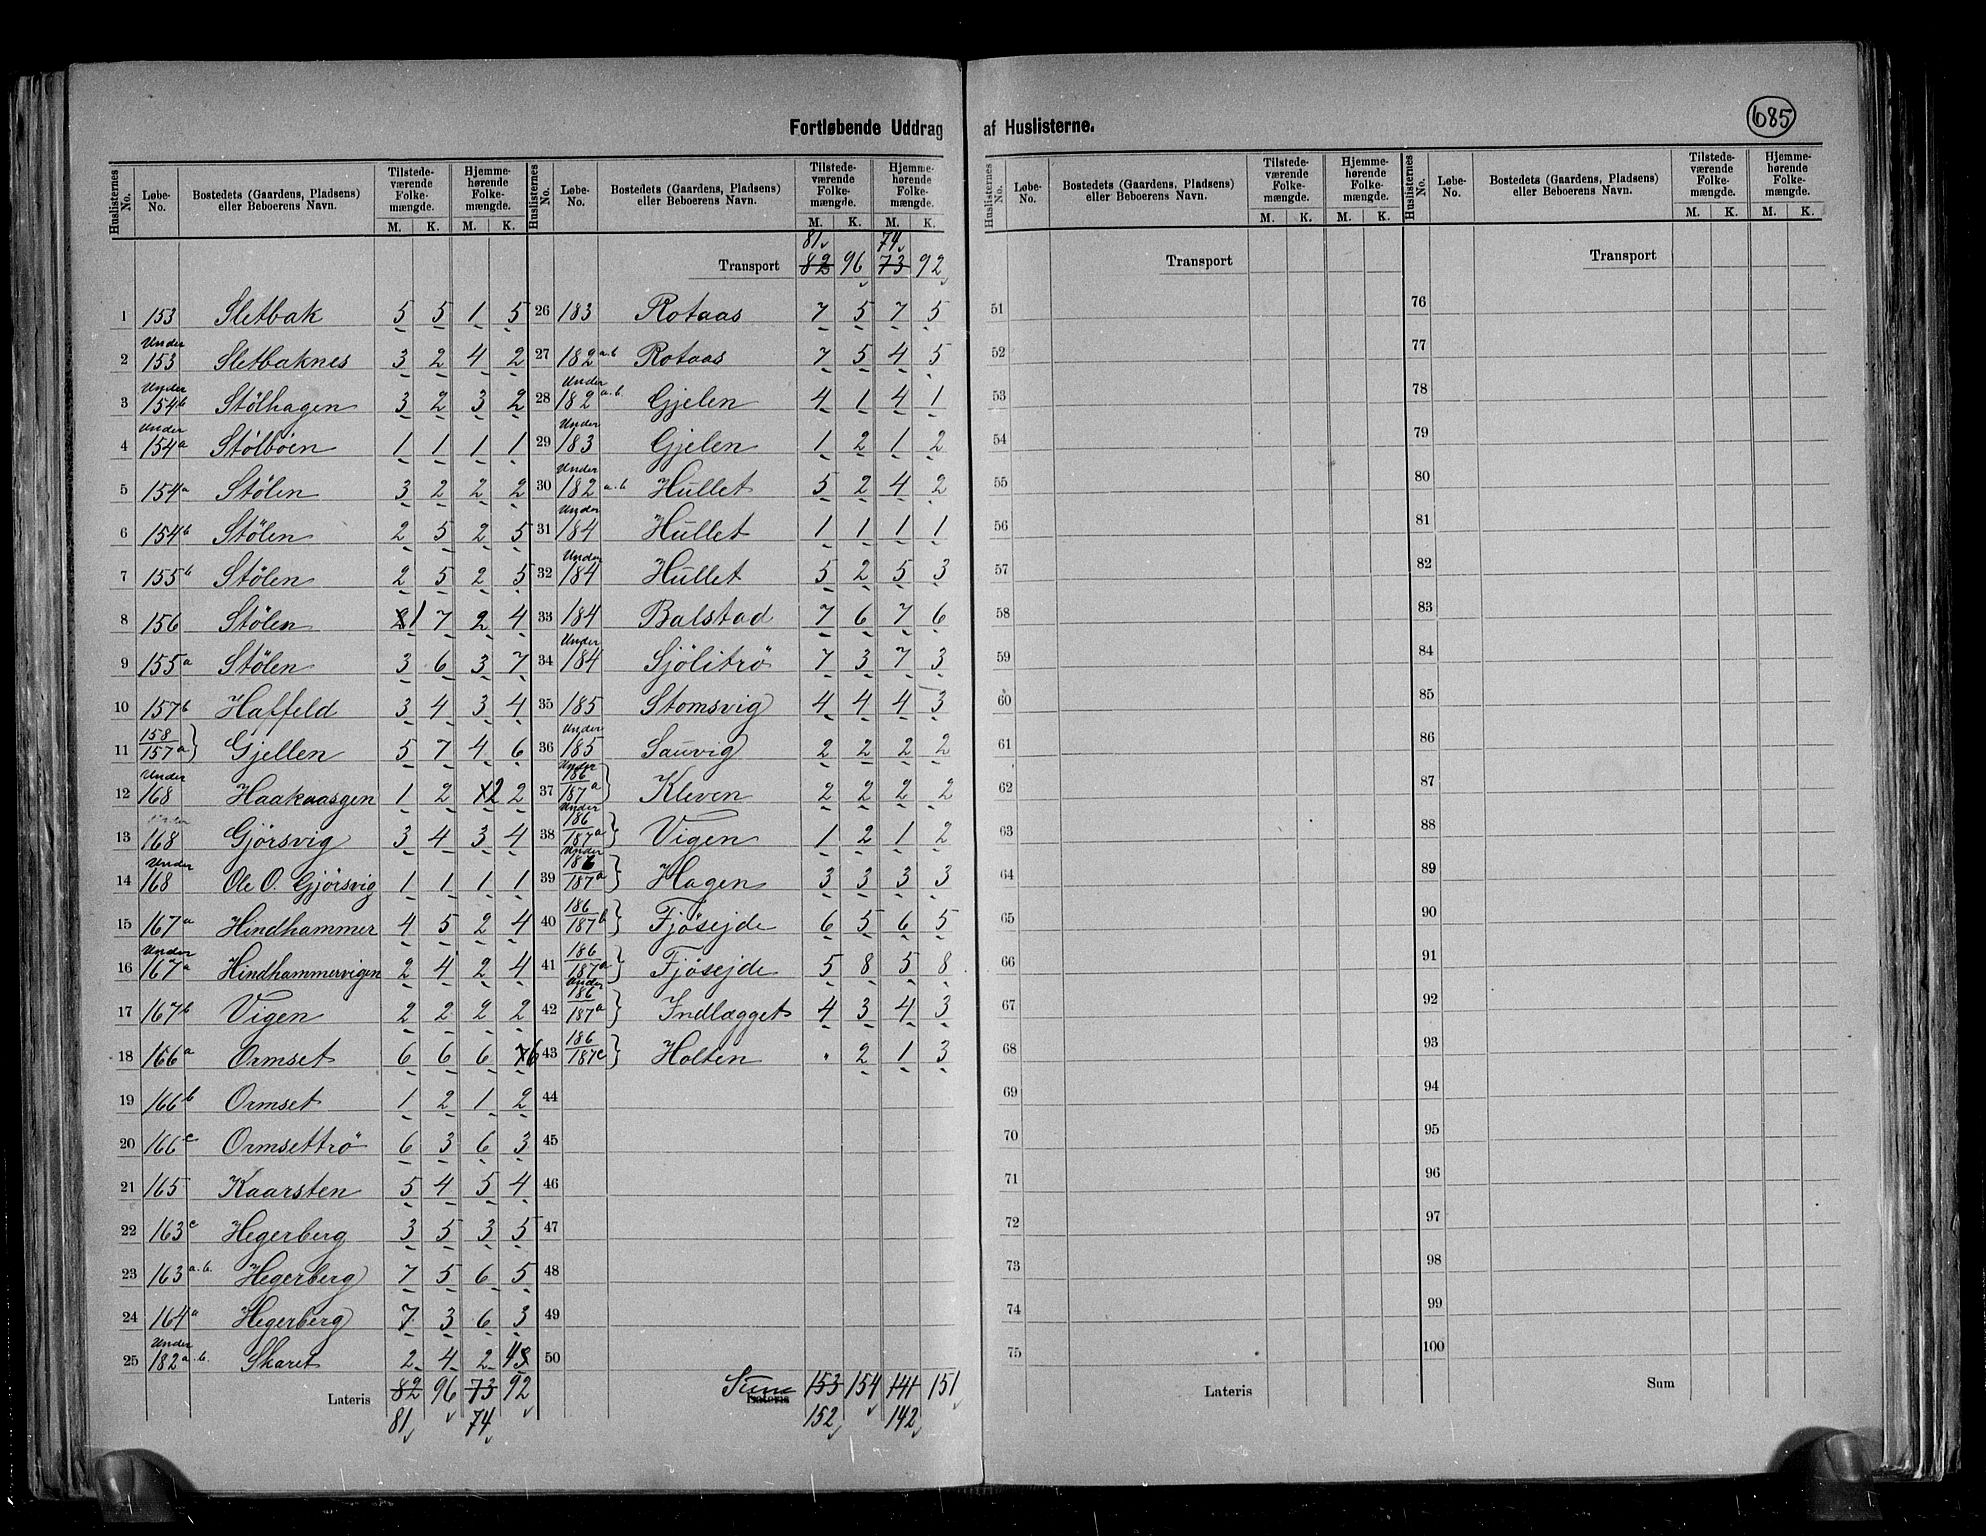 Fortløbende Uddrag af Huslisterne.
685
Huslisternes No. | Løbe-No. | Bostedets (Gaardens, Pladsens) eller Beboerens Navn. | Tilstedeværende Folkemængde. M. K. | Hjemmehørende Folkemængde. M. K.
1 153 Sletbak 5 5 1 5
2 Under 153 Sletbaknes 3 2 4 2
3 Under 154b Stølhagen 3 2 3 2
4 Under 154a Stølbøen 1 1 1 1
5 154a Stølen 3 2 2 2
6 154b Stølen 2 5 2 5
7 155b Stølen 2 5 2 5
8 156 Stølen 1 7 2 4
9 155a Stølen 3 6 3 7
10 157b Haffeld 3 4 3 4
11 158/157a } Gjellen 5 7 4 6
12 Under 168 Haakaasgen 1 2 2 2
13 Under 168 Gjørsvig 3 4 3 4
14 Under 168 Ole O. Gjørsvig 1 1 1 1
15 167a Hindhammer 4 5 2 4
16 Under 167a Hindhammervigen 2 4 2 4
17 167b Vigen 2 2 2 2
18 166a Ormset 6 6 6 6
19 166b Ormset 1 2 1 2
20 166c Ormsettrö 6 3 6 3
21 165 Kaarsten 5 4 5 4
22 163c Hegerberg 3 5 3 5
23 163a.b. Hegerberg 7 5 6 5
24 164a Hegerberg 7 3 6 3
25 Under 182a.b. Skaret 2 4 2 4
Lateris 82 96 73 92
81 74
Huslisternes No. | Løbe-No. | Bostedets (Gaardens, Pladsens) eller Beboerens Navn. | Tilstedeværende Folkemængde. M. K. | Hjemmehørende Folkemængde. M. K.
81 74
Transport 82 96 73 92
26 183 Rotaas 7 5 7 5
27 182a.b Rotaas 7 5 4 5
28 Under 182a.b. Gjelen 4 1 4 1
29 Under 183 Gjelen 1 2 1 2
30 Under 182a.b Hullet 5 2 4 2
31 Under 184 Hullet 1 1 1 1
32 Under 184 Hullet 5 2 5 3
33 184 Balstad 7 6 7 6
34 Under 184 Sjölitrö 7 3 7 3
35 185 Stomsvig 4 4 4 3
36 Under 185 Sauvig 2 2 2 2
37 Under 186/187a } Kleven 2 2 2 2
38 Under 186/187a } Vigen 1 2 1 2
39 Under 186/187a } Hagen 3 3 3 3
40 186/187b } Fjösejde 6 5 6 5
41 186/187a } Fjösejde 5 8 5 8
42 Under 186/187a } Indlægget 4 3 4 3
43 186/187c } Holten " 2 1 3
44
45
46
47
48
49
50
Sum Lateris 153 154 141 151
152 142
Huslisternes No. | Løbe-No. | Bostedets (Gaardens, Pladsens) eller Beboerens Navn. | Tilstedeværende Folkemængde. M. K. | Hjemmehørende Folkemængde. M. K.
Transport
51
52
53
54
55
56
57
58
59
60
61
62
63
64
65
66
67
68
69
70
71
72
73
74
75
Lateris
Huslisternes No. | Løbe-No. | Bostedets (Gaardens, Pladsens) eller Beboerens Navn. | Tilstedeværende Folkemængde. M. K. | Hjemmehørende Folkemængde. M. K.
Transport
76
77
78
79
80
81
82
83
84
85
86
87
88
89
90
91
92
93
94
95
96
97
98
99
100
Sum